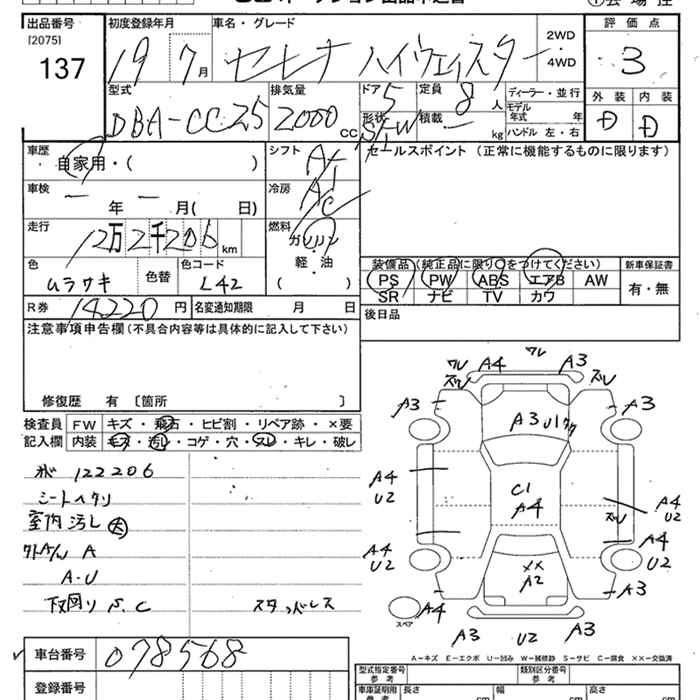 出品番号 初度登録年月 車名・グレード 2WD 評価点
[2075] 137 19 7月 セレナ ハイウェイスター 4WD 3
型式 排気量 ドア 5 定員 8人 ディーラー・並行 外装 内装
DBA-CC25 2000cc 形状 S/W 積載 ー kg モデル年式 年 ハンドル 左・右 D D
車歴 自家用・( ) シフト AT セールスポイント (正常に機能するものに限ります)
車検 ー 年 ー 月( 日) 冷房 A/C
走行 12万2千206km 燃料 ガソリン 軽・油 ( )
装備品(純正品に限り○をつけてください) 新車保証書
色 ムラサキ 色替 色コード L42 PS PW ABS エアB AW 有・無
SR ナビ TV カワ
R券 14220円 名変通知期限 月 日 後日品
注意事項申告欄(不具合内容等は具体的に記入して下さい)
修復歴 有 〔箇所 〕
検査員 FW キズ・飛石・ヒビ割・リペア跡・×要
記入欄 内装 キズ・汚れ・コゲ・穴・スレ・キレ・破レ
ワレ A4 ワレ A3
ズレ ズレ
A3 A3
A3 U1
122206
シートヘタリ
室内汚し 大
A
A-U
下回り S.C スタッドレス
A4 U2
C1 A4
ズレ A4 U2
A4 U2
A4 U2
XX A2
A3
スペア A4
A3 U2 A3
A-キズ E-エクボ U-凹み W-補修跡 S-サビ C-腐食 ××-交換済
車台番号 078568
型式指定番号 参考 類別区分番号 参考
登録番号
車庫証明用 参考 長さ cm 幅 cm 高さ cm